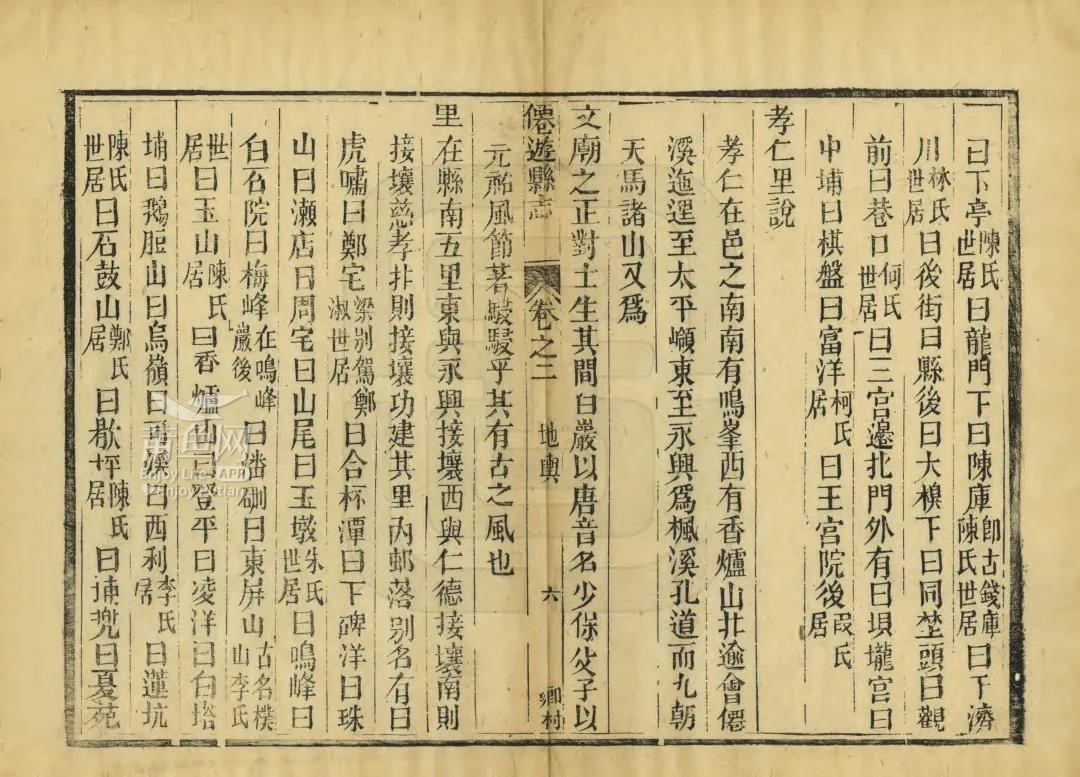 曰下亭陳氏世居曰龍門下曰陳庫卽古錢庫陳氏世居曰下濟
川林氏世居曰後街曰縣後曰大槺下曰同埜頭曰觀
前曰巷口何氏世居曰三宮邊北門外有曰垻壠宮曰
中埔曰棋盤曰富洋柯氏居曰王宮院後段氏居
孝仁里說
孝仁在邑之南南有鳴峯西有香爐山北逾會僊
溪迤邐至太平巓東至永興爲楓溪孔道而九朝
天馬諸山又爲
文廟之正對士生其間白巖以唐音名少保父子以
僊遊縣志 卷之二 地輿 六 鄉村
元祐風節著駸駸乎其有古之風也
里在縣南五里東與永興接壤西與仁德接壤南則
接壤慈孝北則接壤功建其里內邨落别名有曰
虎嘯曰鄭宅梁别駕鄭淑世居曰合杯潭曰下碑洋曰珠
山曰瀨店曰周宅曰山尾曰玉墩朱氏世居曰鳴峰曰
白石院曰梅峰在鳴峰巖後曰潘磵曰東屏山古名樸山李氏
世居曰玉山陳氏居曰香爐山曰登平曰凌洋曰白塔
埔曰鵝脰山曰烏嶺曰吾溪曰西利李氏居曰蓮坑
陳氏世居曰石鼓山鄭氏居曰楸坪陳氏居曰埔兠曰夏苑
莆魚网
Enjoy Life APP
Enjoy Putian